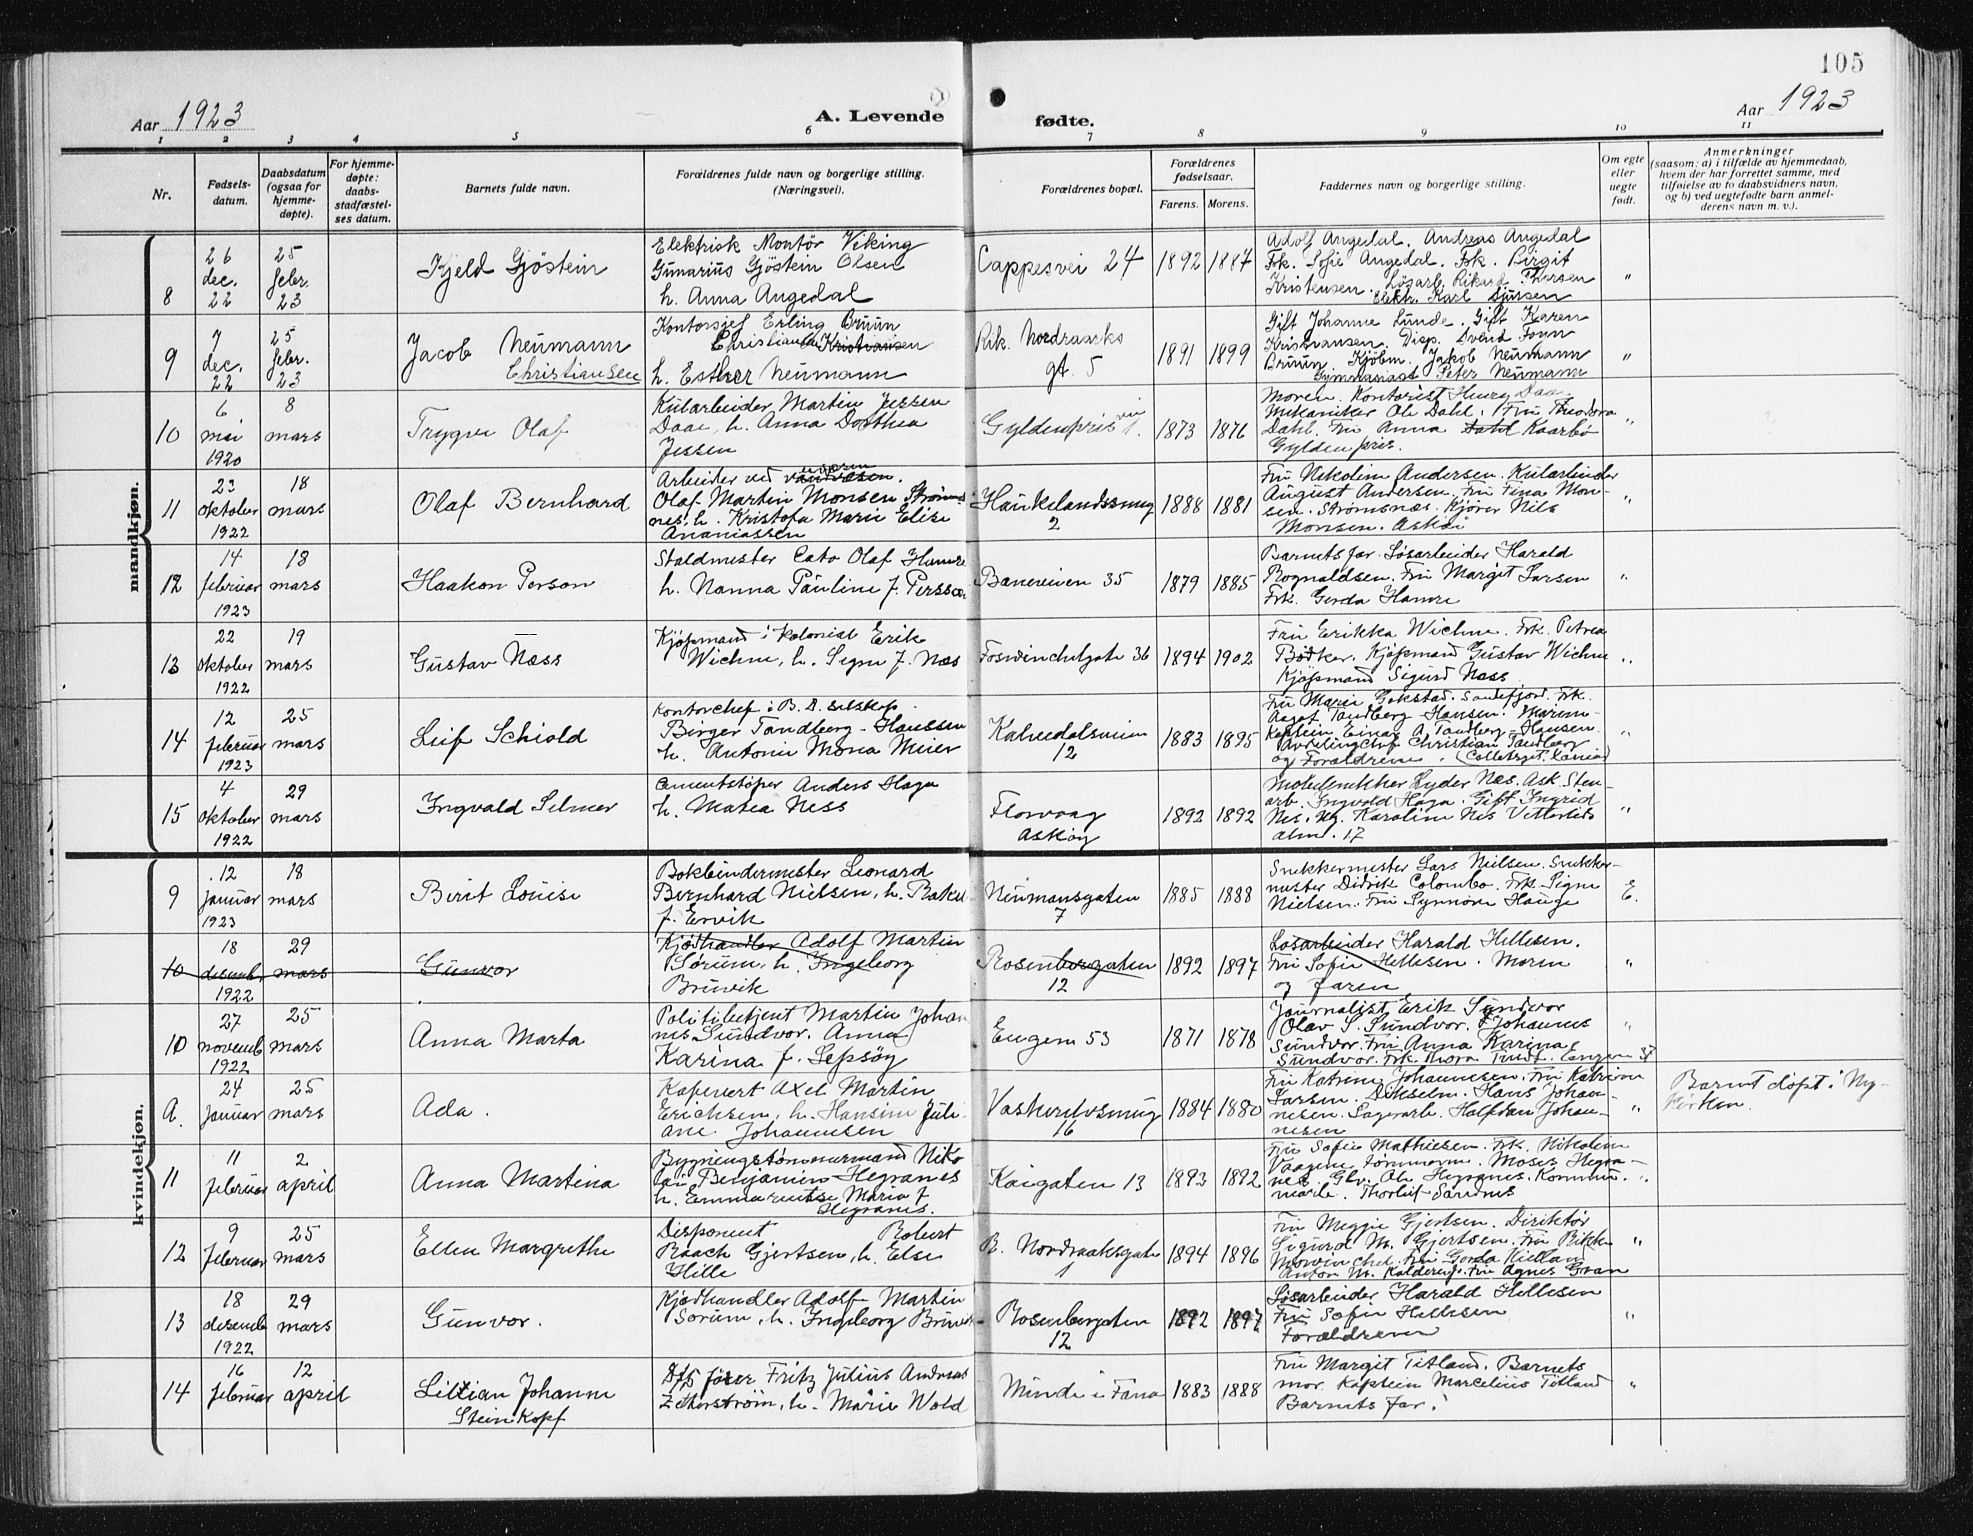 105
Aar 1923
A. Levende
fødte.
Aar 1923
1 2 3 4 5 6 7 8 9 10 11
Nr.
Fødsels-
datum.
Daabsdatum
(ogsaa for
hjemme-
døpte).
For hjemme-
døpte:
daabs-
stadfæstel-
ses datum.
Barnets fulde navn.
Forældrenes fulde navn og borgerlige stilling.
(Næringsvei).
Forældrenes bopæl.
Forældrenes
fødselsaar.
Farens. Morens.
Faddernes navn og borgerlige stilling.
Om egte
eller
uegte
født.
Anmerkninger
(saasom: a) i tilfælde av hjemmedaab,
hvem der har forrettet samme, med
tilføielse av to daabsvidners navn,
og b) ved uegtefødte barn anmel-
derens navn m. v.).
mandkjøn.
8
26
dec.
22
25
febr.
23
Kjeld Gjöstein
Elektrisk Montör Viking
Gunarius Gjöstein Olsen
h. Anna Angedal
Cappesvei 24
1892 1887
Adolf Angedal. Andreas Angedal
Frk. Sofie Angedal. Frk. Birgit
Kristensen. Løsarb. Rikard Thorsen
Elektr. Karl Djursen
"
9
7
dec.
22
25
febr.
23
Jacob Neumann
Christiansen
Kontorsjef Erling Bruun
Christiansen Kristiansen
h. Esther Neumann
Rik. Nordraaks
gt. 5
1891 1899
Gift Johanne Lunde. Gift Karen
Kristiansen. Disp. Svend Foyn
Bruun Kjöbm. Jakob Neumann
Gymnasiast Peter Neumann
"
10
6
mai
1920
8
mars
Trygve Olaf
Kularbeider Martin Jessen
Daae, h. Anna Dorthea
Jessen
Gyldenprisvei 1.
1873 1876
Moren. Kontorist Henry Daae
Mekaniker Ole Dahl. Fru Theodora
Dahl. Fru Anna Dahl Kaarbø
Gyldenpris.
"
11
23
oktober
1922
18
mars
Olaf Bernhard
Arbeider ved
Olaf Martin Monsen Strøms-
nes, h. Kristofa Marie Elise
Ananiassen
Haukelandssmug
2
1888 1881
Fru Nikoline Andersen. Kularbeider
August Andersen. Fru Fina Mon-
sen. Strømsnæs. Kjører Nils
Monsen. Askøi
"
12
14
februar
1923
18
mars
Haakon Person
Staldmester Cato Olaf Hamre
h. Nanna Pauline f. Persson
Baneveien 35
1879 1885
Barnets far. Løsarbeider Harald
Rognaldsen. Fru Margit Larsen
Frk. Gerda Hamre
"
13
22
oktober
1922
19
mars
Gustav Næss
Kjøpmand i kolonial Erik
Wichne, h. Signe f. Næs
Foswinckelgate 36
1894 1902
Fru Erikka Wichne. Frk. Petrea
Bödker. Kjøpmand Gustav Wichne
Kjøpmand Sigurd Næss
"
14
12
februar
1923
25
mars
Leif Schiold
Kontorchef i B. D. selskap.
Birger Tandberg-Hanssen
h. Antonie Mona Meier
Kalvedalsveien
12
1883 1895
Fru Marie Gokstad. Sandefjord. Frk.
Aagot Tandberg Hansen. Marine-
kaptein Einar A. Tandberg-Hansen.
Avdelingchef Christian Tandberg
og Forældrene.
"
15
4
oktober
1922
29
mars
Ingvald Selmer
Cementstøper Anders Haga
h. Matea Ness
Florvaag
Askøy
1892 1892
Møbelsnekker Lyder Næs. Ask. Sten-
arb. Ingvald Haga. Gift Ingrid
Nes. Ug. Karoline Nes Vetterleds
alm. 17
"
kvindekjøn.
9
12
januar
1923
18
mars
Berit Louise
Bokbindermester Leonard
Bernhard Nielsen, h. Rakel
f. Ervik
Neumansgaten
7
1885 1888
Snekkermester Lars Nielsen. Snekker-
mester Didrik Colombo. Frk. Signe
Nielsen. Fru Synnøve Hauge
E.
10
18
desember
1922
29
mars
Gunvor
Kjødhandler Adolf Martin
Sørum, h. Ingeborg
Bruvik
Rosenbergaten
12
1892 1897
Løsarbeider Harald Hellesen.
Fru Sofie Hellesen. Moren
og faren
"
10
27
novemb
1922
25
mars
Anna Marta
Politibetjent Martin Johan
nes Sundvor. Anna
Karina f. Sepsøy
Engen 53
1871 1878
Journalist Erik Sundvor
Olav S. Sundvor. Johannes
Sundvor. Fru Anna Karina
Sundvor. Frk. Thora
"
A.
24
januar
25
mars
Ada.
Kapenert Axel Martin
Erichsen, h. Hansine Juli
ane Johannesen
Vaskerelvsmug
16
1884 1880
Fru Katrine Johannesen. Fru Katrine
Larsen. Hans Johan-
nesen. Lagerarb. Halfdan Johan-
nesen
"
Barnet døpt i Ny-
kirken.
11
11
februar
2
april
Anna Martina
Bygningstømmermand Niko
lai Benjamin Hegranes
h. Emma Maria f
Hegranes.
Kaigaten 13
1893 1892
Fru Sofie Mathiesen. Frk. Nikoline
Vaagene Tømmerm. Moses Hegra-
nes. Ole Hegranes. Kommu.
Thorleif Sandnes
"
12
9
februar
25
mars
Ellen Margrethe
Disponent Robert
Raach Gjertsen, h. Else
Hille
R. Nordraaksgate
1
1894 1896
Fru Meggie Gjertsen. Direktør
Sigurd M. Gjertsen. Fru Rikke
Fru Gerda Kielland
Anton M. Fru Agnes Gran
"
13
18
desemb
1922
29
mars
Gunvor.
Kjødhandler Adolf Martin
Sørum, h. Ingeborg Bruvik
Rosenbergaten
12
1892 1897
Løsarbeider Harald Hellesen
Fru Sofie Hellesen
Forældrene
"
14
16
februar
12
april
Lillian Johanne
Steinkopf
fører Fritz Julius Andreas
Zetterstrøm, h. Marie Wold
Minde i Fana
1883 1888
Fru Margit Titland. Barnets
mor. Kaptein Marcelius Titland
Barnets far.
"